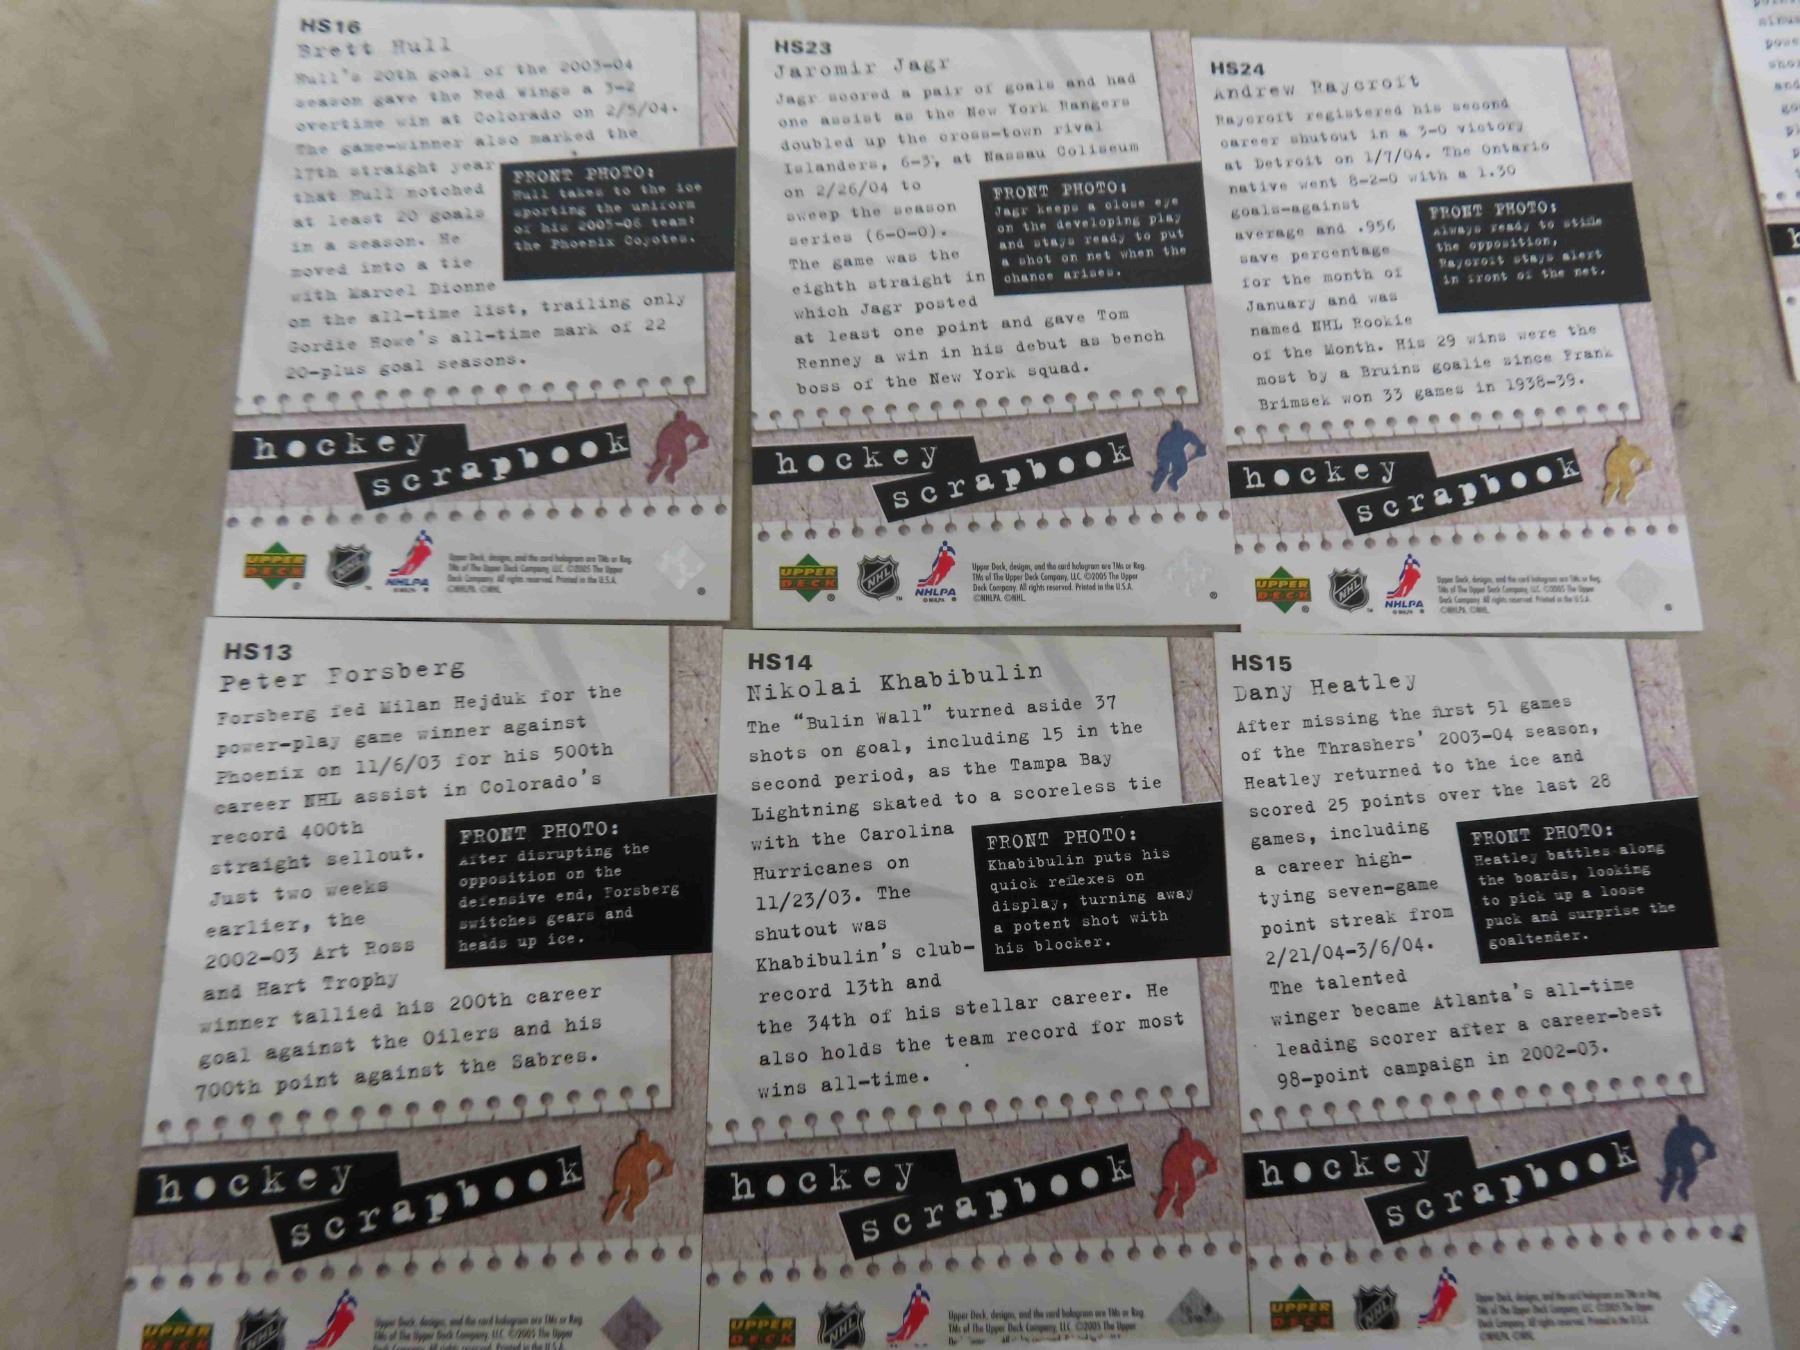 HS16
Brett Hull
Hull's 20th goal of the 2003-04
season gave the Red Wings a 3-2
overtime win at Colorado on 2/5/04.
The game-winner also marked the
17th straight year
that Hull notched
at least 20 goals
in a season. He
moved into a tie
with Marcel Dionne
on the all-time list, trailing only
Gordie Howe's all-time mark of 22
20-plus goal seasons.
FRONT PHOTO:
Hull takes to the ice
sporting the uniform
of his 2005-06 team:
the Phoenix Coyotes.
hockey
scrapbook
UPPER
DECK
NHL
NHLPA
Upper Deck, designs, and the card hologram are TMs or Reg.
TMs of The Upper Deck Company, LLC. ©2005 The Upper
Deck Company. All rights reserved. Printed in the U.S.A.
©NHLPA. ©NHL.
HS23
Jaromir Jagr
Jagr scored a pair of goals and had
one assist as the New York Rangers
doubled up the cross-town rival
Islanders, 6-3, at Nassau Coliseum
on 2/26/04 to
sweep the season
series (6-0-0).
The game was the
eighth straight in
which Jagr posted
at least one point and gave Tom
Renney a win in his debut as bench
boss of the New York squad.
FRONT PHOTO:
Jagr keeps a close eye
on the developing play
and stays ready to put
a shot on net when the
chance arises.
hockey
scrapbook
UPPER
DECK
NHL
NHLPA
Upper Deck, designs, and the card hologram are TMs or Reg.
TMs of The Upper Deck Company, LLC. ©2005 The Upper
Deck Company. All rights reserved. Printed in the U.S.A.
©NHLPA. ©NHL.
HS24
Andrew Raycroft
Raycroft registered his second
career shutout in a 3-0 victory
at Detroit on 1/7/04. The Ontario
native went 8-2-0 with a 1.30
goals-against
average and .956
save percentage
for the month of
January and was
named NHL Rookie
of the Month. His 29 wins were the
most by a Bruins goalie since Frank
Brimsek won 33 games in 1938-39.
FRONT PHOTO:
Always ready to stifle
the opposition,
Raycroft stays alert
in front of the net.
hockey
scrapbook
UPPER
DECK
NHL
NHLPA
Upper Deck, designs, and the card hologram are TMs or Reg.
TMs of The Upper Deck Company, LLC. ©2005 The Upper
Deck Company. All rights reserved. Printed in the U.S.A.
©NHLPA. ©NHL.
HS13
Peter Forsberg
Forsberg fed Milan Hejduk for the
power-play game winner against
Phoenix on 11/6/03 for his 500th
career NHL assist in Colorado's
record 400th
straight sellout.
Just two weeks
earlier, the
2002-03 Art Ross
and Hart Trophy
winner tallied his 200th career
goal against the Oilers and his
700th point against the Sabres.
FRONT PHOTO:
After disrupting the
opposition on the
defensive end, Forsberg
switches gears and
heads up ice.
hockey
scrapbook
UPPER
DECK
NHL
Upper Deck, designs, and the card hologram are TMs or Reg.
TMs of The Upper Deck Company, LLC. ©2005 The Upper
Deck Company. All rights reserved. Printed in the U.S.A.
HS14
Nikolai Khabibulin
The "Bulin Wall" turned aside 37
shots on goal, including 15 in the
second period, as the Tampa Bay
Lightning skated to a scoreless tie
with the Carolina
Hurricanes on
11/23/03. The
shutout was
Khabibulin's club-
record 13th and
the 34th of his stellar career. He
also holds the team record for most
wins all-time.
FRONT PHOTO:
Khabibulin puts his
quick reflexes on
display, turning away
a potent shot with
his blocker.
hockey
scrapbook
UPPER
DECK
NHL
Upper Deck, designs, and the card hologram are TMs or Reg.
TMs of The Upper Deck Company, LLC. ©2005 The Upper
HS15
Dany Heatley
After missing the first 51 games
of the Thrashers' 2003-04 season,
Heatley returned to the ice and
scored 25 points over the last 28
games, including
a career high-
tying seven-game
point streak from
2/21/04-3/6/04.
The talented
winger became Atlanta's all-time
leading scorer after a career-best
98-point campaign in 2002-03.
FRONT PHOTO:
Heatley battles along
the boards, looking
to pick up a loose
puck and surprise the
goaltender.
hockey
scrapbook
UPPER
DECK
NHL
Upper Deck, designs, and the card hologram are TMs or Reg.
TMs of The Upper Deck Company, LLC. ©2005 The Upper
Deck Company. All rights reserved. Printed in the U.S.A.
©NHLPA. ©NHL.